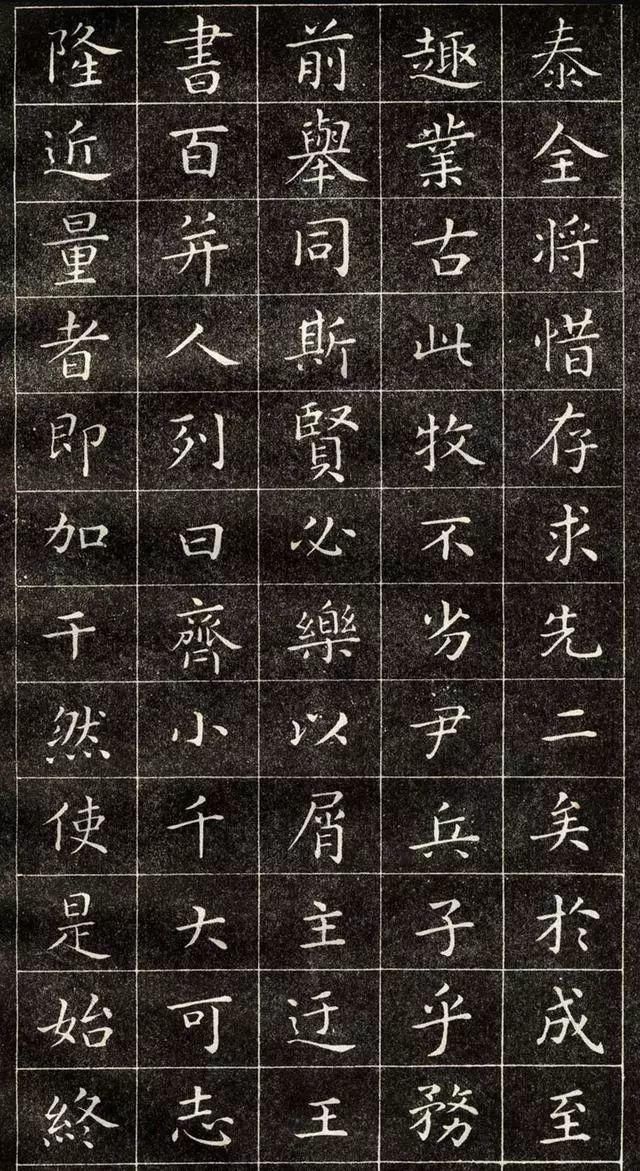 泰全將惜存求先二矣於成至
趣業古此牧不劣尹兵子乎務
前舉同斯賢必樂以屑主迂王
書百并人列曰齊小千大可志
隆近量者即加干然使是始終